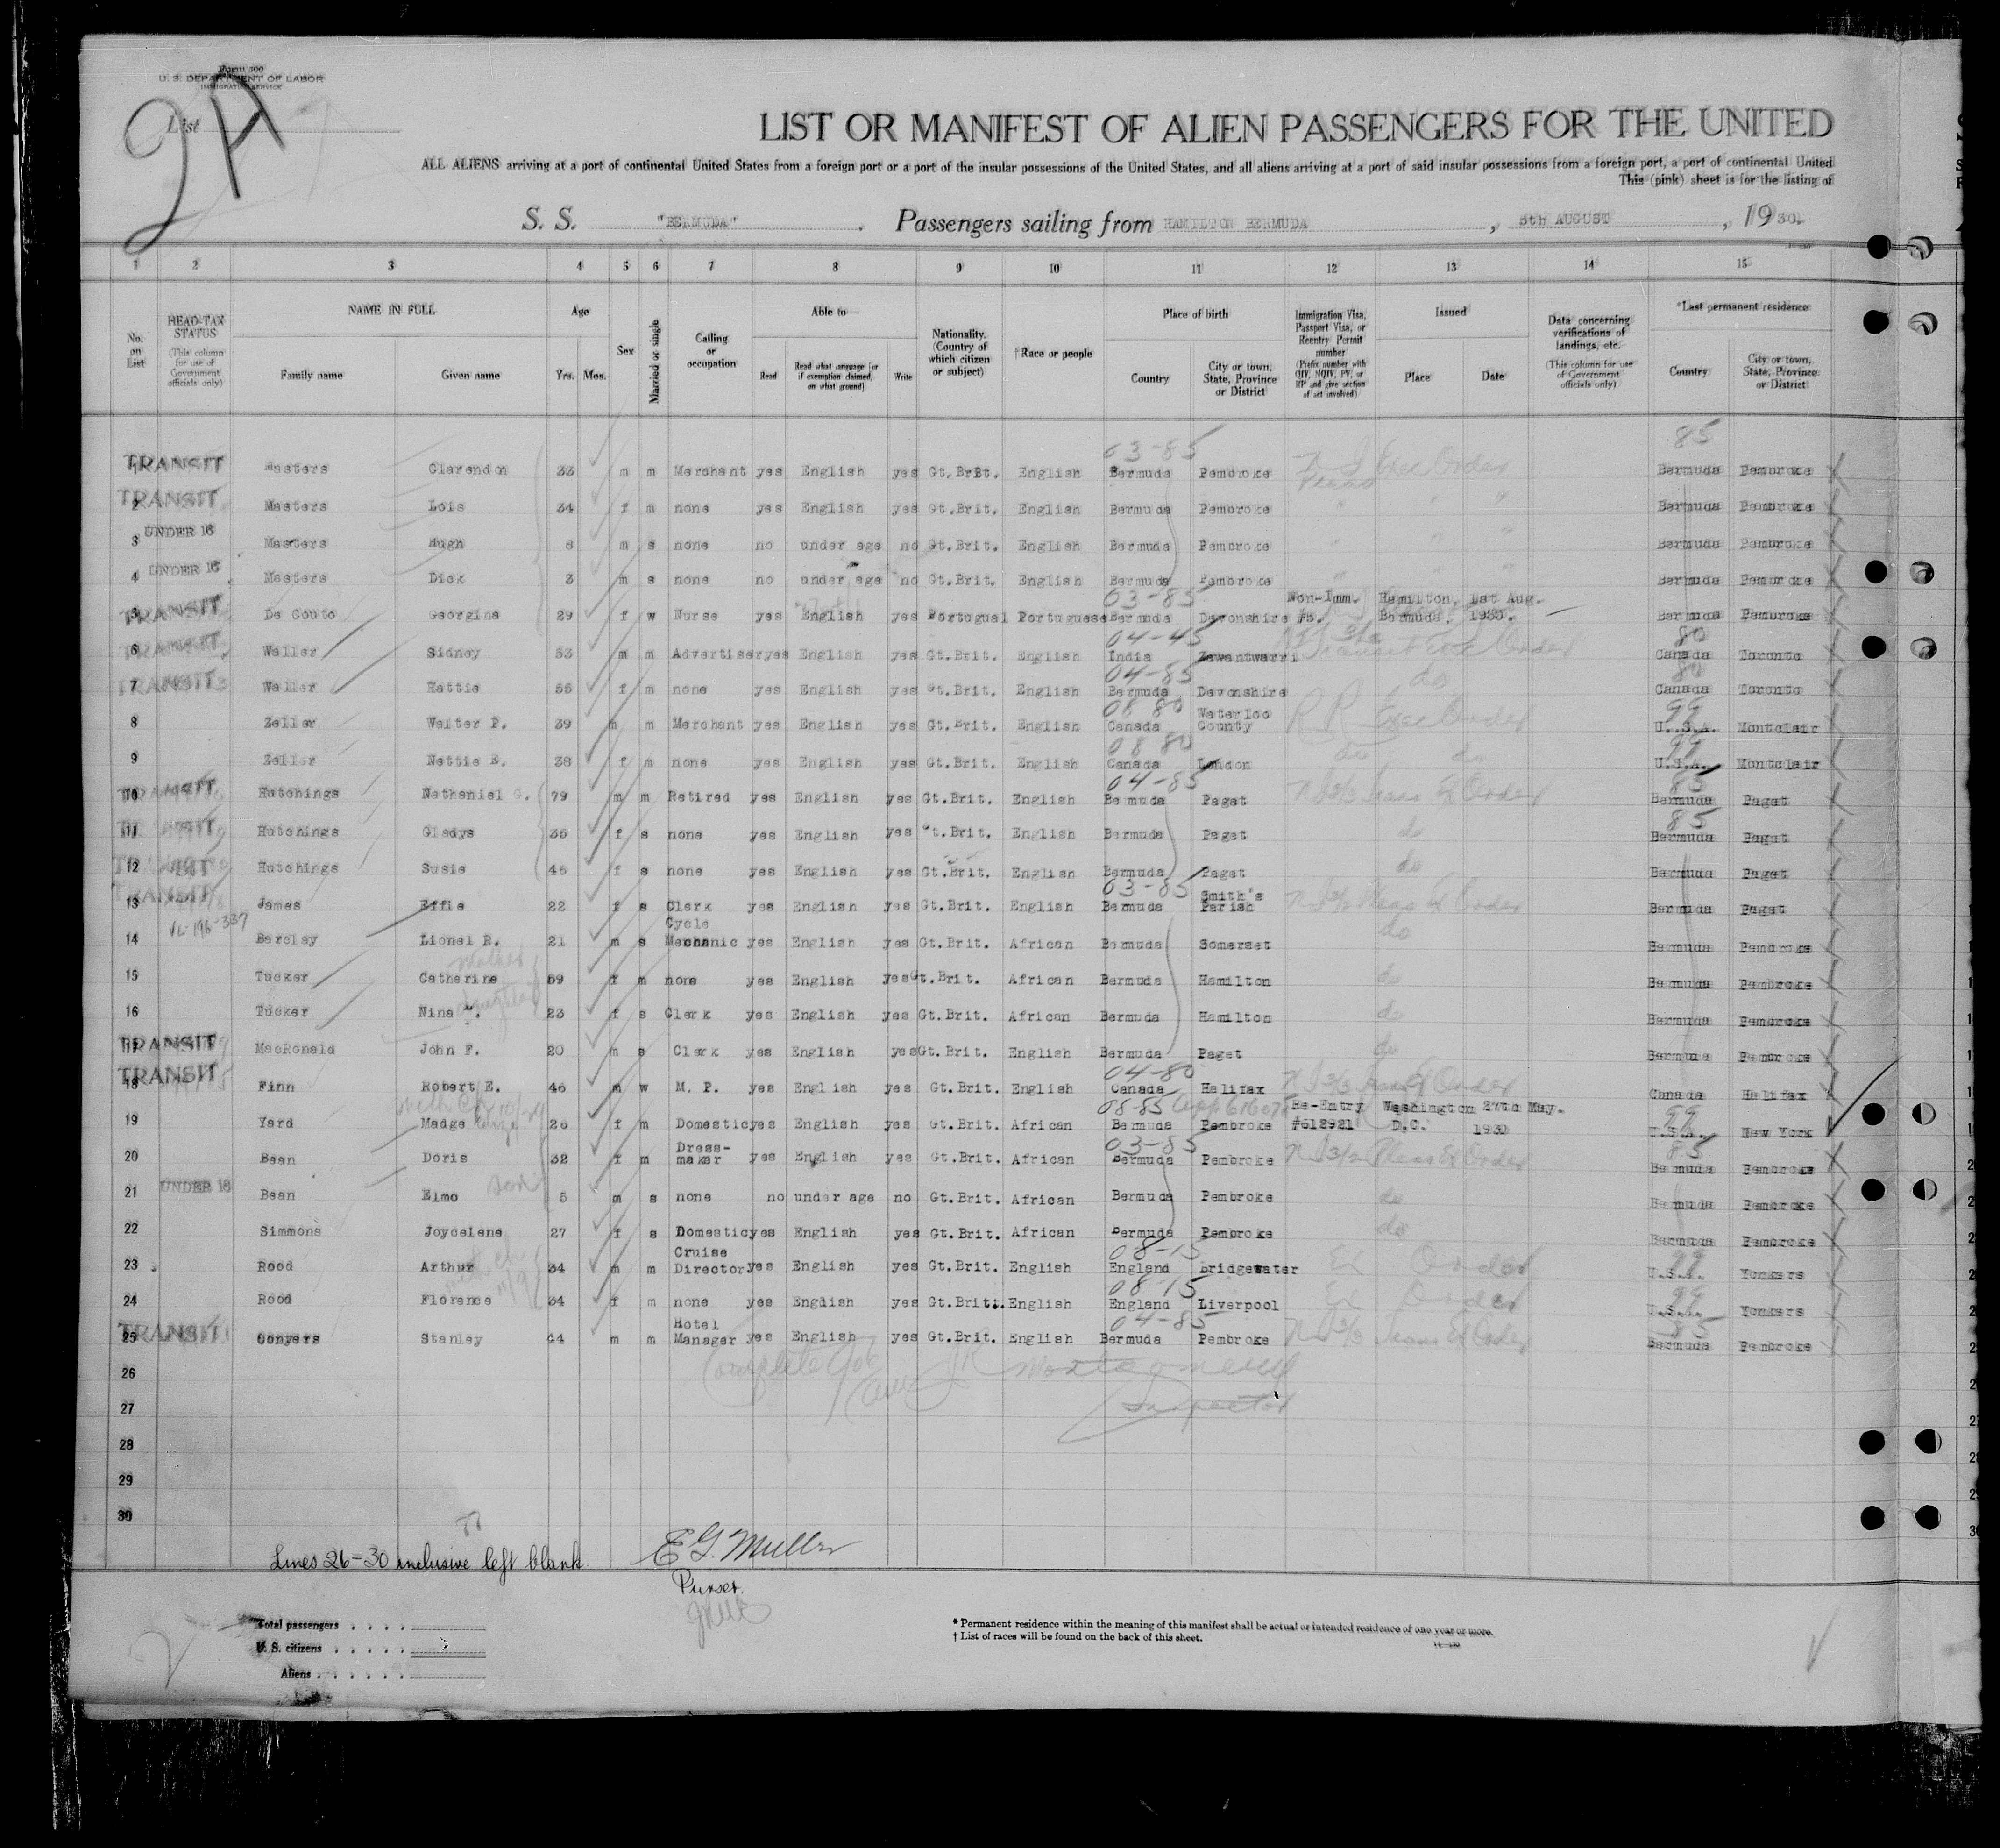 Form 500
U. S. DEPARTMENT OF LABOR
IMMIGRATION SERVICE
List
9A
LIST OR MANIFEST OF ALIEN PASSENGERS FOR THE UNITED
ALL ALIENS arriving at a port of continental United States from a foreign port or a port of the insular possessions of the United States, and all aliens arriving at a port of said insular possessions from a foreign port, a port of continental United
This (pink) sheet is for the listing of
S. S. "BERMUDA" . Passengers sailing from HAMILTON BERMUDA , 5th AUGUST , 1930.
1 2 3 4 5 6 7 8 9 10 11 12 13 14 15
No. on List
HEAD-TAX STATUS (This column for use of Government officials only)
NAME IN FULL Family name Given name
Age Yrs. Mos.
Sex
Married or single
Calling or occupation
Able to— Read Read what language [or if exemption claimed, on what ground] Write
Nationality. (Country of which citizen or subject)
†Race or people
Place of birth Country City or town, State, Province or District
Immigration Visa, Passport Visa, or Reentry Permit number (Prefix number with QIV, NQIV, PV, or RP and give section of act involved)
Issued Place Date
Data concerning verifications of landings, etc. (This column for use of Government officials only)
*Last permanent residence Country City or town, State, Province or District
03-85 85
TRANSIT 1 Masters Clarendon 33 m m Merchant yes English yes Gt.Brit. English Bermuda Pembroke Exec Order Bermuda Pembroke
TRANSIT 2 Masters Lois 34 f m none yes English yes Gt.Brit. English Bermuda Pembroke " " " Bermuda Pembroke
UNDER 16 3 Masters Hugh 6 m s none no under age no Gt.Brit. English Bermuda Pembroke " " " Bermuda Pembroke
UNDER 16 4 Masters Dick 3 m s none no under age no Gt.Brit. English Bermuda Pembroke " " " Bermuda Pembroke
03-85
TRANSIT 5 De Couto Georgina 29 f w Nurse yes English yes Portugal Portuguese Bermuda Devonshire Non-Imm. #5. Hamilton, Bermuda. 1st Aug. 1930. Bermuda Pembroke
04-45 80
TRANSIT 6 Waller Sidney 53 m m Advertiser yes English yes Gt.Brit. English India Zawantwarri Transit Exec Order Canada Toronto
04-85 80
TRANSIT 7 Waller Hattie 55 f m none yes English yes Gt.Brit. English Bermuda Devonshire do Canada Toronto
08 80 99
8 Zeller Walter P. 39 m m Merchant yes English yes Gt.Brit. English Canada Waterloo County R P Exec Order U.S.A. Montclair
08 80 99
9 Zeller Nettie E. 38 f m none yes English yes Gt.Brit. English Canada London do do U.S.A. Montclair
04-85 85
TRANSIT 10 Hutchings Nathaniel G. 79 m m Retired yes English yes Gt.Brit. English Bermuda Paget NI 3/2 Trans Ex Order Bermuda Paget
85
TRANSIT 11 Hutchings Gladys 35 f s none yes English yes Gt.Brit. English Bermuda Paget do Bermuda Paget
TRANSIT 12 Hutchings Susie 46 f s none yes English yes Gt.Brit. English Bermuda Paget do Bermuda Paget
03-85
TRANSIT 13 James Effie 22 f s Clerk yes English yes Gt.Brit. English Bermuda Smith's Parish NI 3/2 Pleas Ex Order Bermuda Paget
VL-196-337
14 Barclay Lionel R. 21 m s Cycle Mechanic yes English yes Gt.Brit. African Bermuda Somerset do Bermuda Pembroke
mother
15 Tucker Catherine 59 f m none yes English yes Gt.Brit. African Bermuda Hamilton do Bermuda Pembroke
daughter
16 Tucker Nina 23 f s Clerk yes English yes Gt.Brit. African Bermuda Hamilton do Bermuda Pembroke
TRANSIT 17 MacRonald John F. 20 m s Clerk yes English yes Gt.Brit. English Bermuda Paget do Bermuda Pembroke
04-80
TRANSIT 18 Finn Robert E. 46 m w M. P. yes English yes Gt.Brit. English Canada Halifax NI 3/2 Trans Ex Order Canada Halifax
08-85 99
19 Yard Madge 26 f m Domestic yes English yes Gt.Brit. African Bermuda Pembroke Re-Entry #612921 Washington D.C. 27th May. 1930 U.S.A. New York
03-85 85
20 Bean Doris 32 f m Dress-maker yes English yes Gt.Brit. African Bermuda Pembroke NI 3/2 Pleas Ex Order Bermuda Pembroke
son
UNDER 16 21 Bean Elmo 5 m s none no under age no Gt.Brit. African Bermuda Pembroke do Bermuda Pembroke
22 Simmons Joycelene 27 f s Domestic yes English yes Gt.Brit. African Bermuda Pembroke do Bermuda Pembroke
08-15 99
23 Rood Arthur 34 m m Cruise Director yes English yes Gt.Brit. English England Bridgewater Ex Order U.S.A. Yonkers
08-15 99
24 Rood Florence 34 f m none yes English yes Gt.Brit. English England Liverpool Ex Order U.S.A. Yonkers
04-85 85
TRANSIT 25 Conyers Stanley 44 m m Hotel Manager yes English yes Gt.Brit. English Bermuda Pembroke NI 3/2 Trans Ex Order Bermuda Pembroke
26
Montgomery
27
Inspector
28
29
30
Lines 26-30 inclusive left blank. E G. Muller
Purser.
Total passengers
U. S. citizens
Aliens
* Permanent residence within the meaning of this manifest shall be actual or intended residence of one year or more.
† List of races will be found on the back of this sheet.